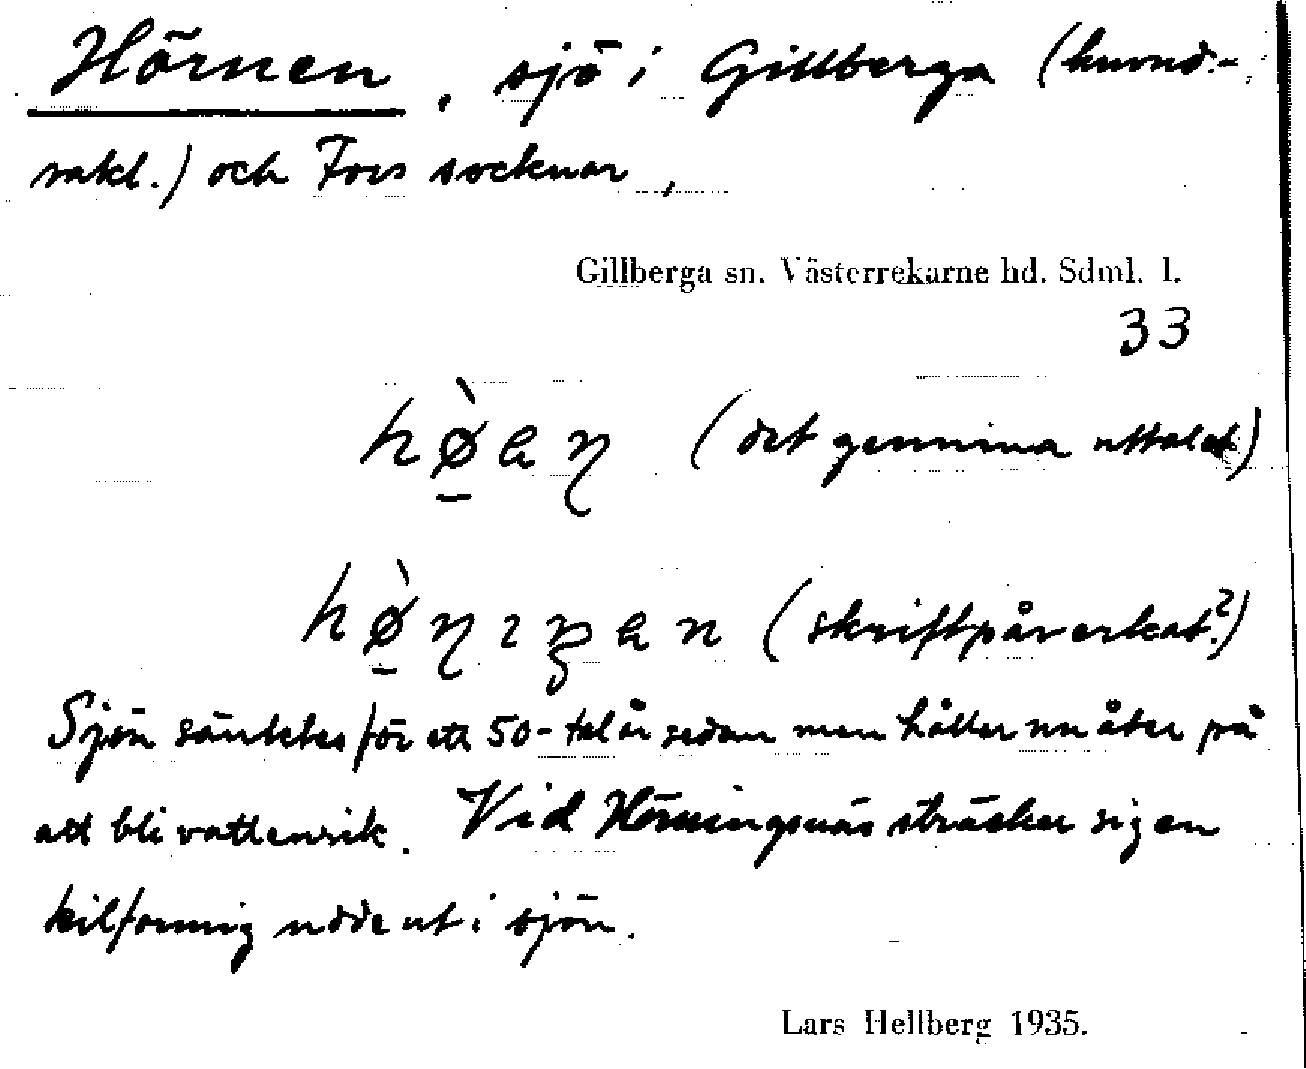 Hörnen, sjö i Gillberga (huvud-
sakl.) och Fors socknar,
Gillberga sn. Västerrekarne hd. Sdml. l.
33
hø̱̀an (det genuina uttalet)
(skriftpåverkat?)
Sjön sänktes för ett 50-tal år sedan men håller nu åter på
att bli vattenrik. Vid Hörningsnäs sträcker sig en
kilformig udde ut i sjön.
Lars Hellberg 1935.